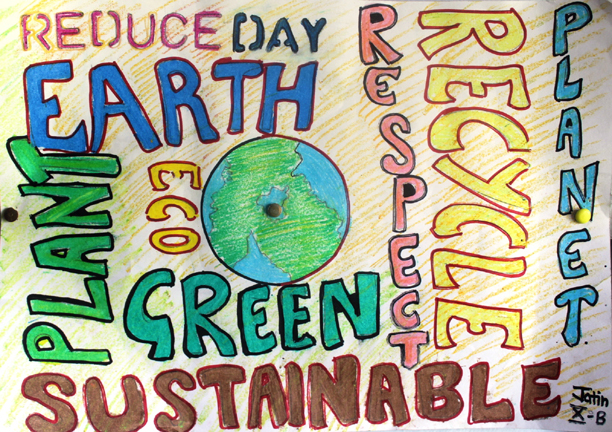 REDUCE DAY
EARTH
PLANT
ECO
GREEN
RESPECT
RECYCLE
PLANET
SUSTAINABLE
Jatin
X-B